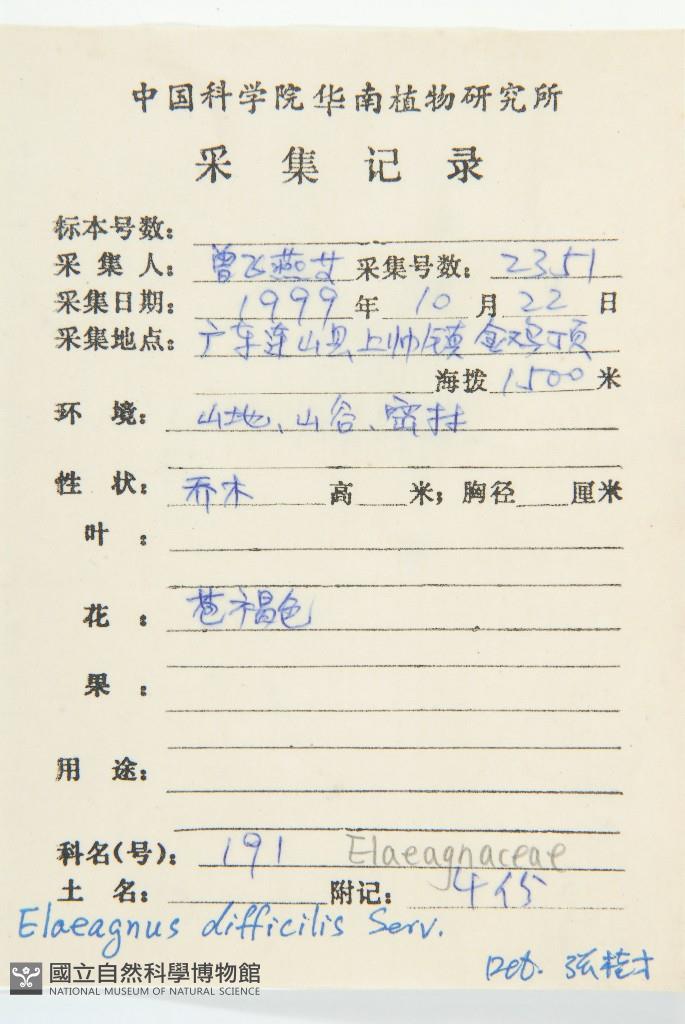 中国科学院华南植物研究所
采集记录
标本号数：
采集人：曾飞燕 采集号数：2351
采集日期：1999年10月22日
采集地点：广东连山县上帅镇金鸡顶
海拨1500米
环境：山地、山谷、密林
性状：乔木 高 米；胸径 厘米
叶：
花：苞褐色
果：
用途：
科名(号)：191 Elaeagnaceae
土名： 附记：4份
Elaeagnus difficilis Serv.
Det. 张桂才
國立自然科學博物館
NATIONAL MUSEUM OF NATURAL SCIENCE